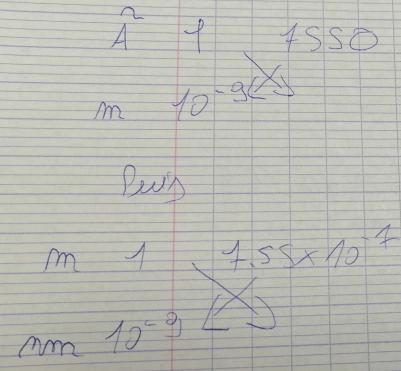 Ã 1 7550
m 10⁻⁹
Puis
m 1 7,55 x 10⁻⁷
nm 10⁻⁹